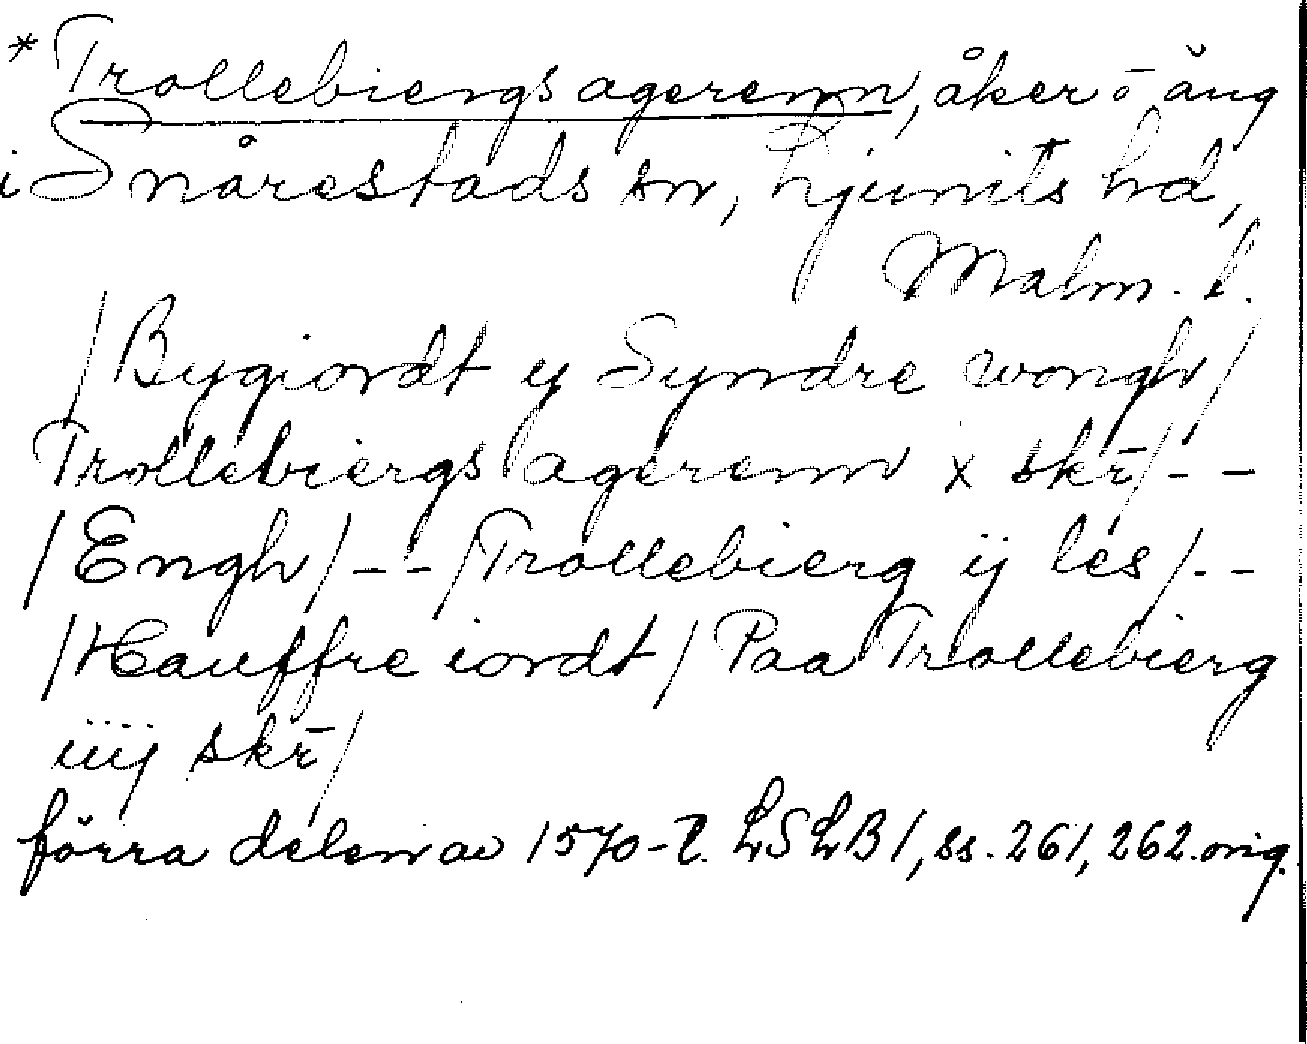 * Trollebiergs agerenn, åker o äng
i Snårestads sn, Ljunits hd,
Malm. l.
/Bygiordt y Syndre wongh/
Trollebiergs agerenn x skr̄/ - -
/Engh/ - - /Trollebierg ij les/ - -
/Hauffre iordt/ Paa Trollebierg
iiij skr̄/
förra delen av 1570-t. LSLB 1, ss. 261, 262. orig.